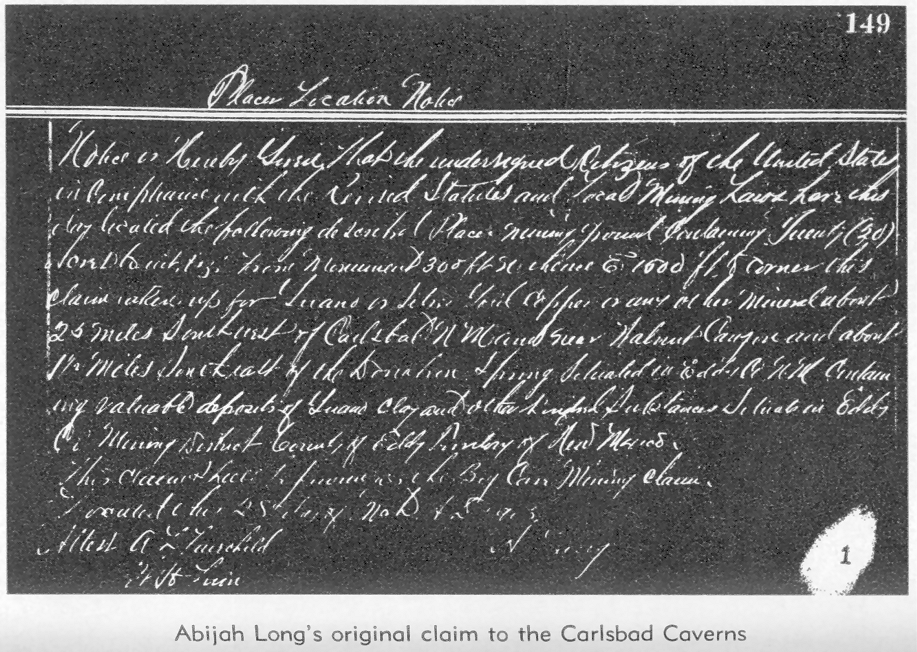 149
Placer Location Notice
Notice is Hereby Given, That the undersigned Citizens of the United States
in Compliance with the Revised Statutes and Local Mining Laws have this
day located the following described Placer mining ground Containing Twenty (20)
from Monument 300 ft thence E 1500 ft corner this
claim taken up for Guano or Copper or any other Mineral about
25 miles Southwest of Carlsbad N M and near Walnut Canyon and about
Miles Southeast of the Donahue Spring Situated in Eddy Co N M Contain
ing valuable deposits of Guano Clay and other kindred Substances Situate in Eddy
Co Mining District County of Eddy Territory of New Mexico.
This claim shall be known as the Big Cave Mining claim.
Located this 25 day of
Attest A L Fairchild
1
Abijah Long's original claim to the Carlsbad Caverns